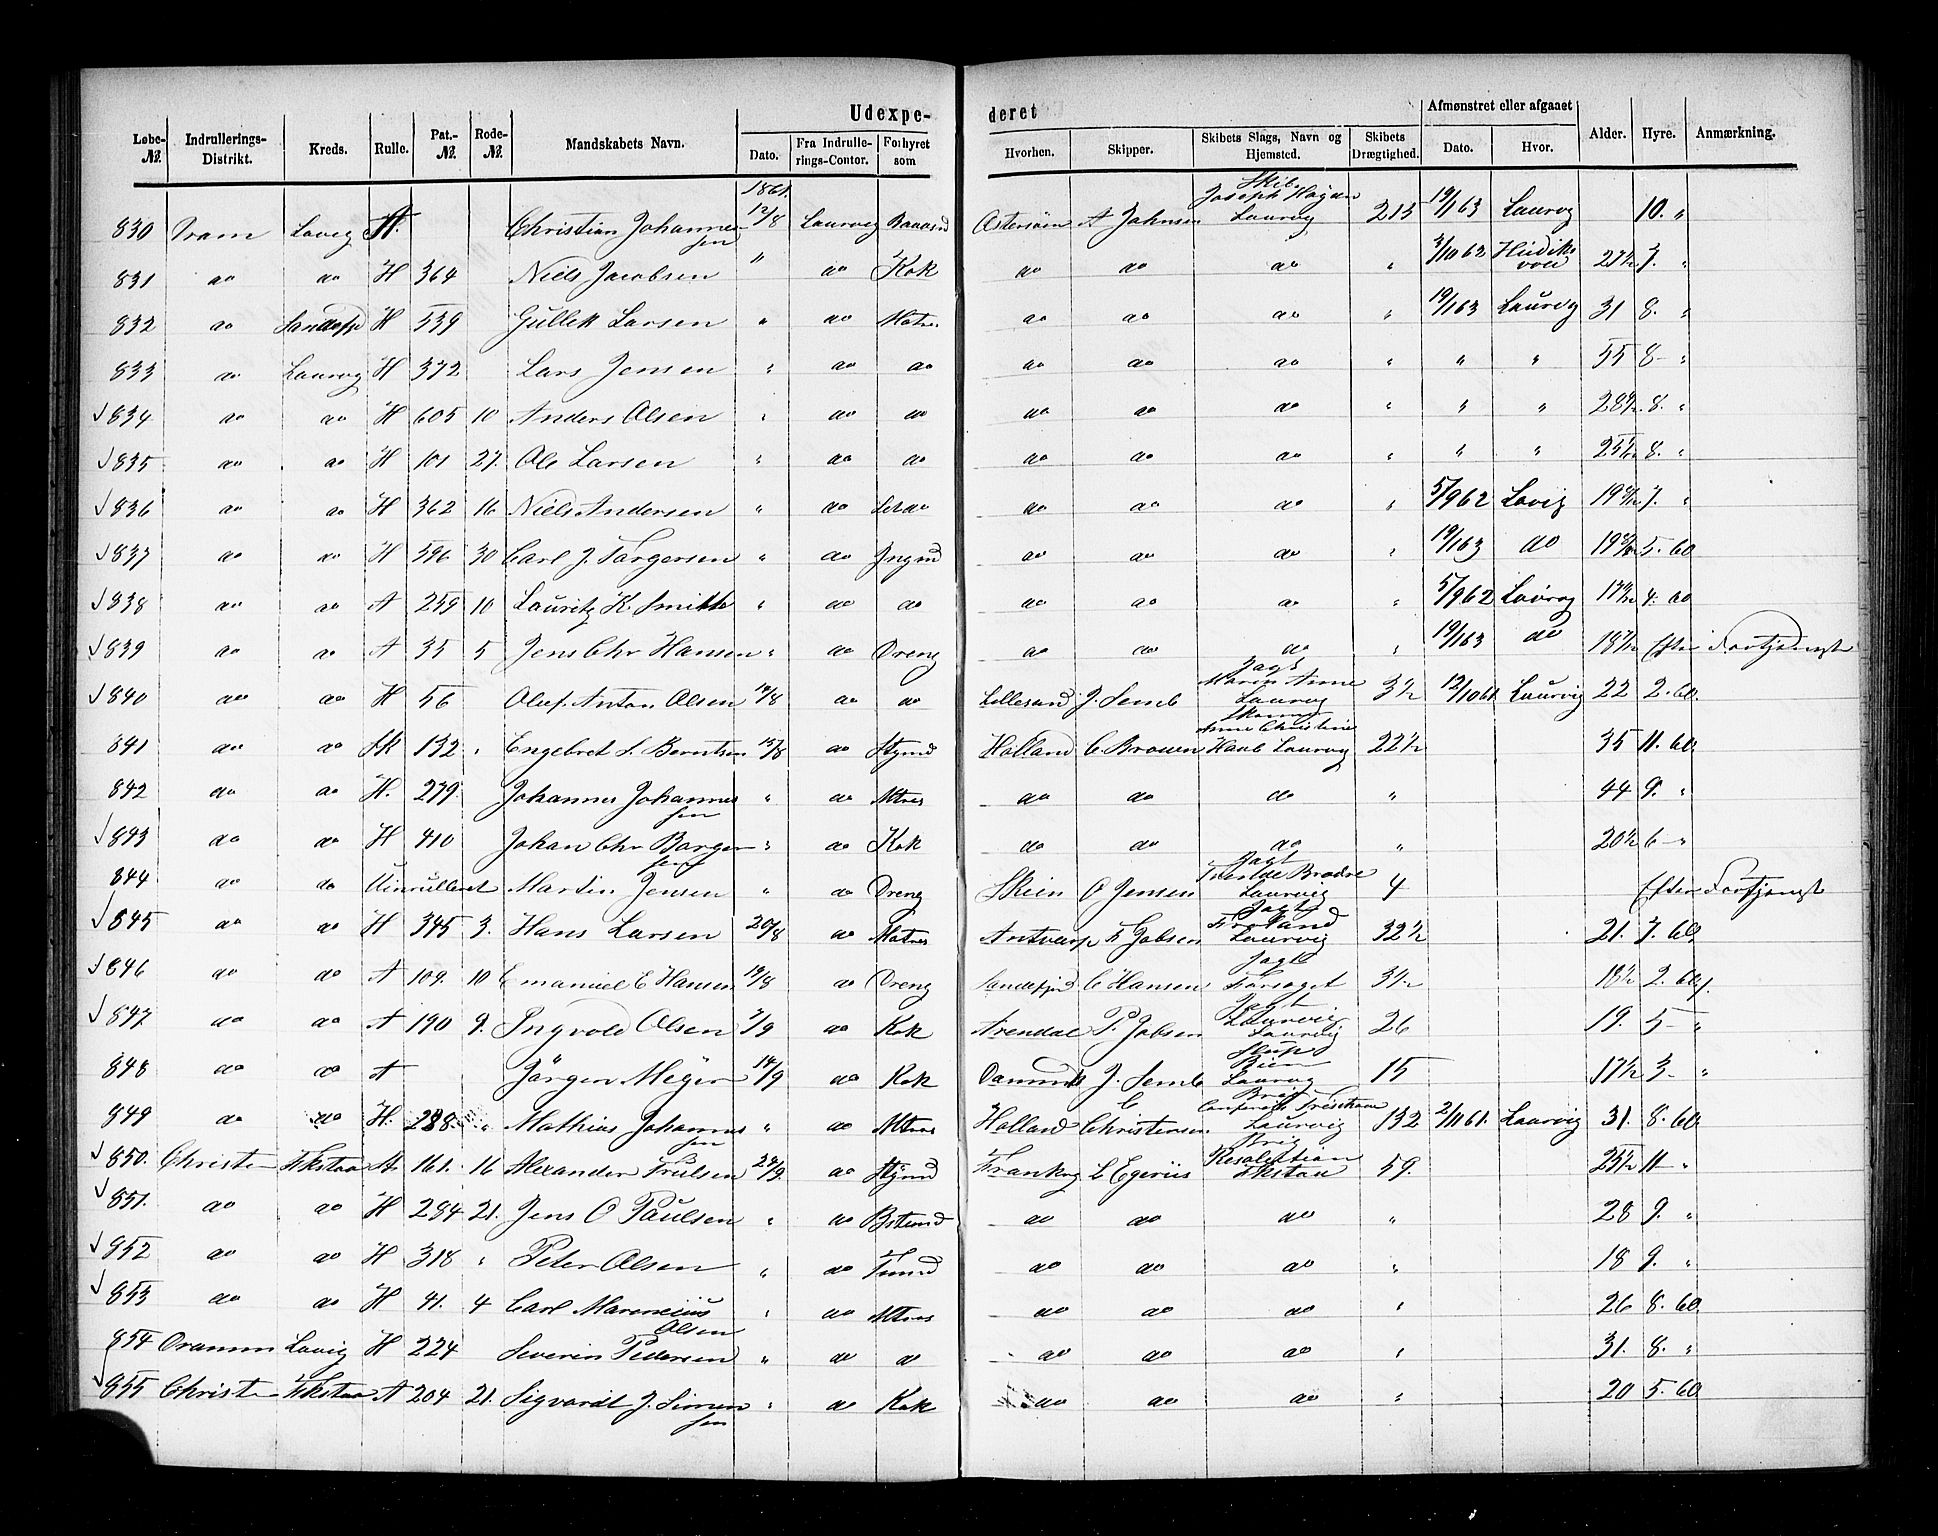 Udexpe- deret
Løbe-№. Indrullerings-Distrikt. Kreds. Rulle. Pat.-№. Rode-№. Mandskabets Navn. Dato. Fra Indrulle-rings-Contor. Forhyret som Hvorhen. Skipper. Skibets Slags, Navn og Hjemsted. Skibets Drægtighed. Afmønstret eller afgaaet Dato. Hvor. Alder. Hyre. Anmærkning.
1861.
830 Dram Lavig A. Christian Johannessen 12/8 Laurvig Baadsmd Østersøen A Johnsen Skib Joseph Haydn Laurvig 213 19/1 63 Laurvig 10. "
831 do do H 364 Niels Jacobsen " do Kok do do do " 3/10 62 7. "
832 do Sandefj H 539 Gullik Larsen " do Matros do do do " 19/1 63 Laurvig 31 8. "
833 do Laurvig H 372 Lars Jensen " do do do do do " " " 55 8 - "
834 do do H 605 10 Anders Olsen " do do do do do " " " 8. "
835 do do H 101 27. Ole Larsen " do do do do do " " " 8. "
836 do do H 362 16 Niels Andersen " do do do do " 5/9 62 Lavig 7. "
837 do do H 596 30 Carl J. Torgersen " do Jngmd do do do " 19/1 63 do 5. 60
838 do do A 259 10 Lauritz K. Smith " do do do do do " 5/9 62 Laurvig 4. do
839 do do A 35 5 Jens Chr Hansen " do Dreng do do do " 19/1 63 do Efter Fortjeneste
840 do do H 56 Oluf Anton Olsen 14/8 do do Lillesand J. Semb Jagt Maren Anne Laurvig 3 1/2 12/10 61 Laurvig 22 2. 60.
841 do do SK 132 " Engebret L. Berntsen 15/8 do Stymd Holland C. Brouen Anne Christine Laurvig 22 1/2 35 11. 60.
842 do do H. 279. Johannes Johannessen " do Mtros do do do " 44 9. "
843 do do H 410 Johan Chr Borgersen " do Kok do do do " 20 1/2 6 - "
844 do do Uinrulleret Martin Jensen " do Dreng Skien O Jensen Jagt Brødre Laurvig 4 Efter Fortjenst
845 do do H 345 3. Hans Larsen 20/8 do Matros Antverp F Jobsen Jagt Laurvig 32 1/2 21. 7. 60.
846 do do A 109. 10 Emanuel E Hansen 19/8 do Dreng Sandefjord C Hansen Jagt Forsøget 3 1/2 18 1/2 2. 60.
847 do do A 190 9. Ingvold Olsen 7/9 do Kok Arendal P. Jobsen Jagt Laurvig Laurvig 26 19. 5 - "
848 do do A Jørgen Meyer 14/9 do Kok Danmk J. Semb Slup Laurvig 15 17 1/2 3 - "
849 do do H. 288. " Mathias Johannessen " do Mtros Holland C Christensen Brig Laurvig 132 2/11 61. Laurvig 31. 8. 60.
850. Christ Fkstad A. 161. 16 Alexander Truelsen 24/9. do Stymd Frankrig L Egeriis Brig Resolution Fkstad 59. 25 1/2 11 - "
851. do do H 284 21. Jens O Paulsen " do Bstmd do do do " 28 9. "
852 do do H 318 " Peter Olsen " do Tmmd do do do " 18 9. "
853 do do H 41. 4 Carl Marencius Olsen " do Mtros do do do " 26 8. 60.
854 Drammn Lavig H 224 Severin Pedersen " do do do do do " 31. 8. "
855 Christ Fkstad A 204 21. Sigvardt J. Simensen " do Kok do do do " 20 5. 60